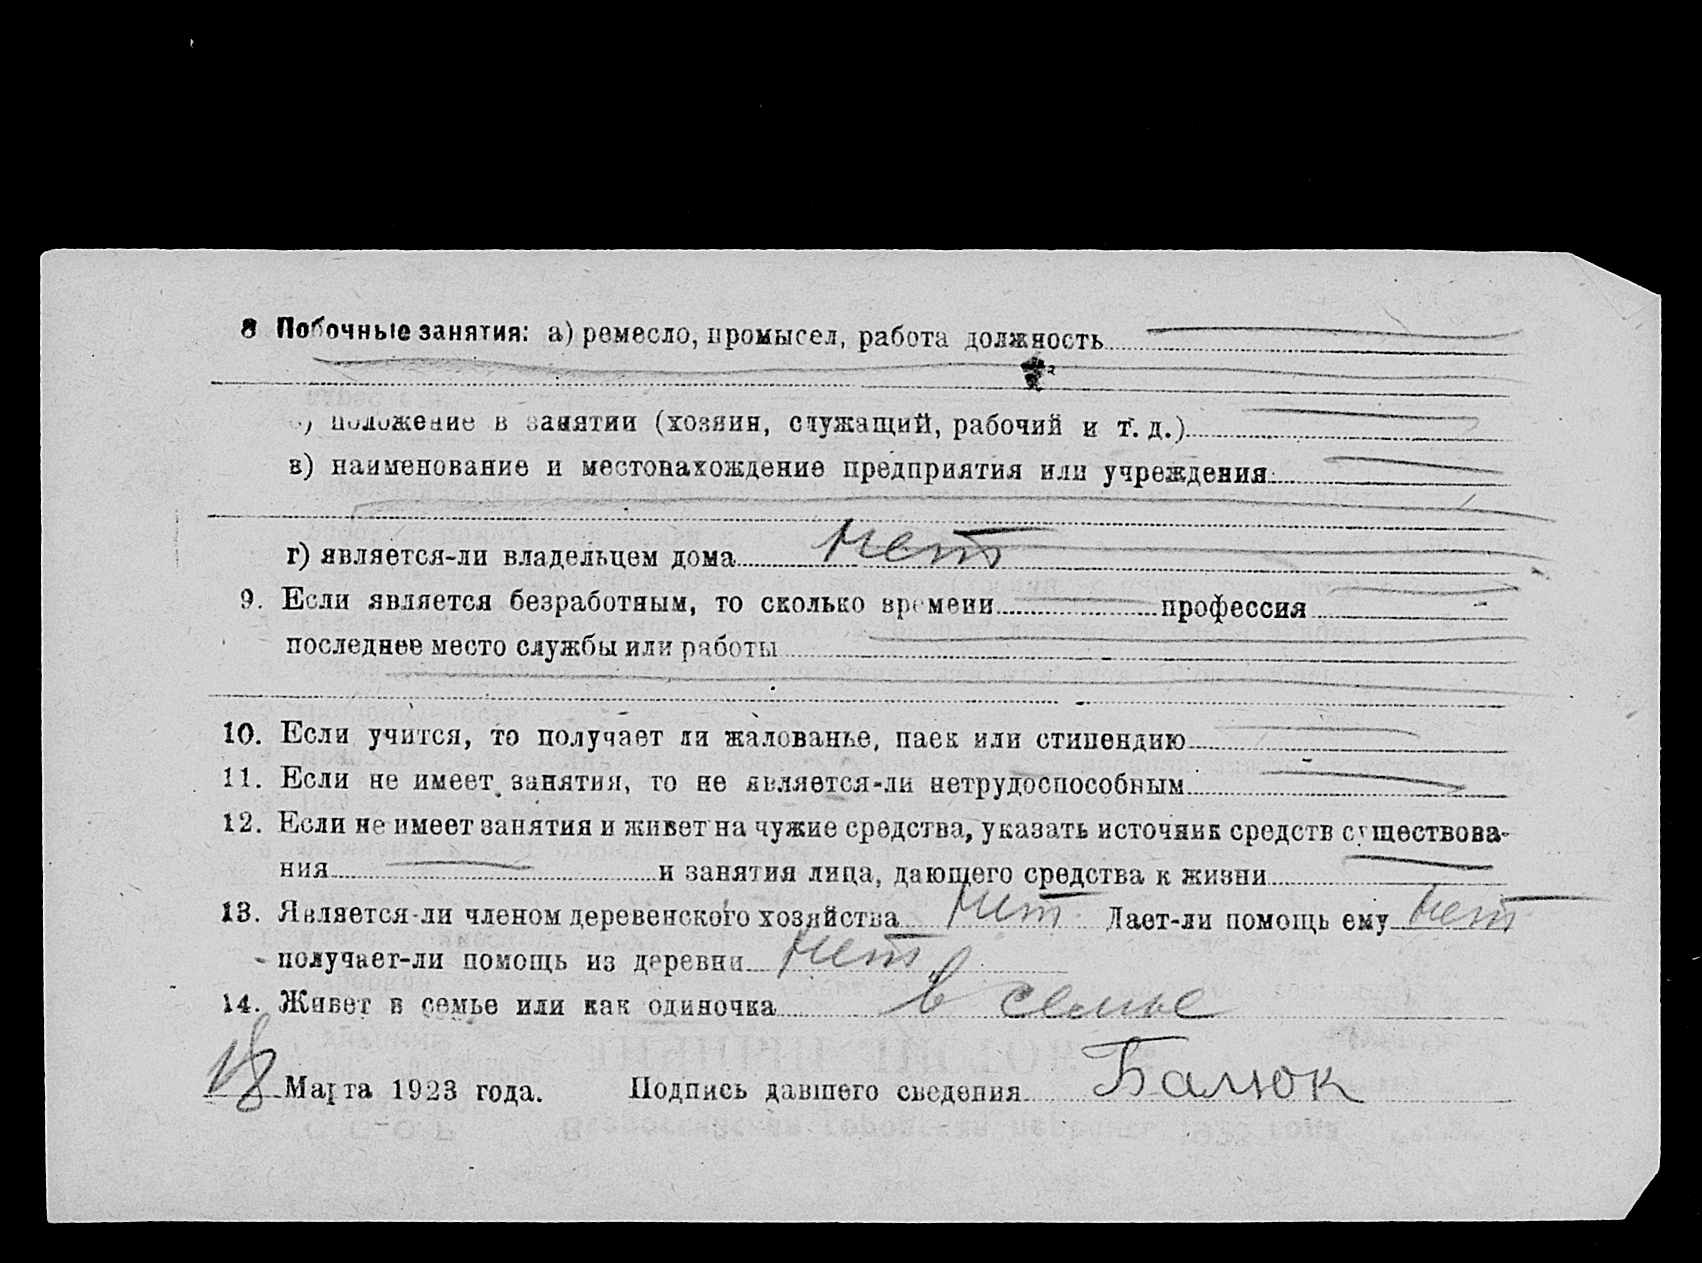 8 Побочные занятия: а) ремесло, промысел, работа должность
б) положение в занятии (хозяин, служащий, рабочий и т. д.)
в) наименование и местонахождение предприятия или учреждения
г) является-ли владельцем дома нет
9. Если является безработным, то сколько времени профессия
последнее место службы или работы
10. Если учится, то получает ли жалованье, паек или стипендию
11. Если не имеет занятия, то не является-ли нетрудоспособным
12. Если не имеет занятия и живет на чужие средства, указать источник средств существова-
ния и занятия лица, дающего средства к жизни
13. Является-ли членом деревенского хозяйства нет Дает-ли помощь ему нет
получает-ли помощь из деревни нет
14. Живет в семье или как одиночка в семье
18 Марта 1923 года. Подпись давшего сведения Балюк